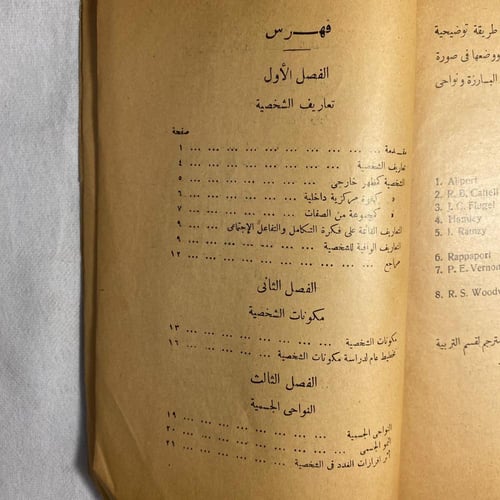 فهرس
الفصل الأول
تعاريف الشخصية
صفحة
مقدمة ... ... ... ... ... ... ... ... ١
تعاريف الشخصية ... ... ... ... ... ... ٤
الشخصية كمظهر خارجي ... ... ... ... ... ٥
» كقوة مركزية داخلية ... ... ... ... ٦
» كمجموعة من الصفات ... ... ... ... ٧
التعاريف القائمة على فكرة التكامل والتفاعل الإجتماعى ... ٩
التعاريف الوافية للشخصية ... ... ... ... ... ٩
مراجع ... ... ... ... ... ... ... ... ١٢
الفصل الثانى
مكونات الشخصية
مكونات الشخصية ... ... ... ... ... ... ١٣
تخطيط عام لدراسة مكونات الشخصية ... ... ... ١٦
الفصل الثالث
النواحى الجسمية
النواحى الجسمية ... ... ... ... ... ... ١٩
النمو الجسمى ... ... ... ... ... ... ... ٢٠
أثر إفرازات الغدد فى الشخصية ... ... ... ... ٢١
طريقة توضيحية
ووضعها فى صورة
البارزة ونواحى
1. Allport
2. R. B. Cattell
3. J. C. Flugel
4. Hamley
5. I. Ramzy
6. Rappaport
7. P. E. Vernon
8. R. S. Woodw
مترجم لقسم التربية